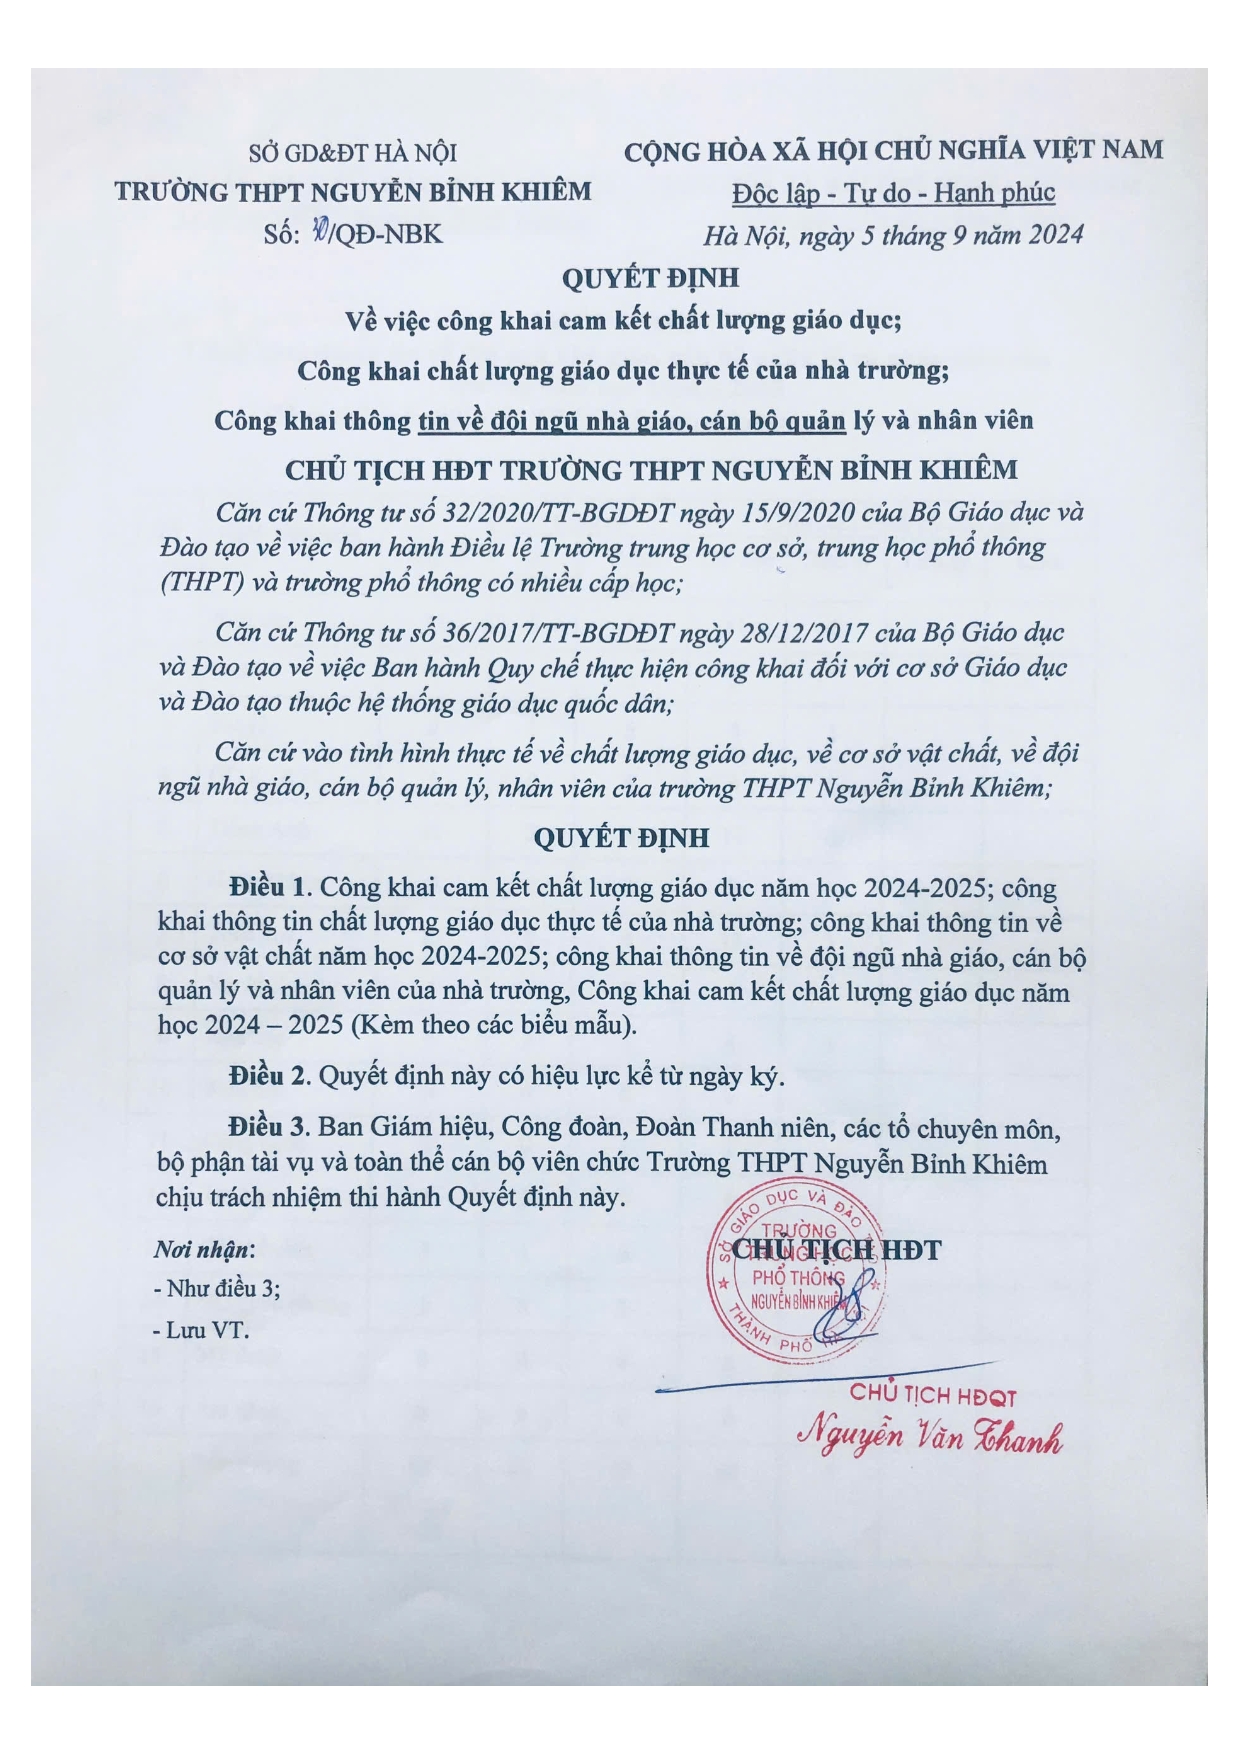 SỞ GD&ĐT HÀ NỘI
TRƯỜNG THPT NGUYỄN BỈNH KHIÊM
Số: /QĐ-NBK
CỘNG HÒA XÃ HỘI CHỦ NGHĨA VIỆT NAM
Độc lập - Tự do - Hạnh phúc
Hà Nội, ngày 5 tháng 9 năm 2024
QUYẾT ĐỊNH
Về việc công khai cam kết chất lượng giáo dục;
Công khai chất lượng giáo dục thực tế của nhà trường;
Công khai thông tin về đội ngũ nhà giáo, cán bộ quản lý và nhân viên
CHỦ TỊCH HĐT TRƯỜNG THPT NGUYỄN BỈNH KHIÊM
Căn cứ Thông tư số 32/2020/TT-BGDĐT ngày 15/9/2020 của Bộ Giáo dục và
Đào tạo về việc ban hành Điều lệ Trường trung học cơ sở, trung học phổ thông
(THPT) và trường phổ thông có nhiều cấp học;
Căn cứ Thông tư số 36/2017/TT-BGDĐT ngày 28/12/2017 của Bộ Giáo dục
và Đào tạo về việc Ban hành Quy chế thực hiện công khai đối với cơ sở Giáo dục
và Đào tạo thuộc hệ thống giáo dục quốc dân;
Căn cứ vào tình hình thực tế về chất lượng giáo dục, về cơ sở vật chất, về đội
ngũ nhà giáo, cán bộ quản lý, nhân viên của trường THPT Nguyễn Bỉnh Khiêm;
QUYẾT ĐỊNH
Điều 1. Công khai cam kết chất lượng giáo dục năm học 2024-2025; công
khai thông tin chất lượng giáo dục thực tế của nhà trường; công khai thông tin về
cơ sở vật chất năm học 2024-2025; công khai thông tin về đội ngũ nhà giáo, cán bộ
quản lý và nhân viên của nhà trường, Công khai cam kết chất lượng giáo dục năm
học 2024 – 2025 (Kèm theo các biểu mẫu).
Điều 2. Quyết định này có hiệu lực kể từ ngày ký.
Điều 3. Ban Giám hiệu, Công đoàn, Đoàn Thanh niên, các tổ chuyên môn,
bộ phận tài vụ và toàn thể cán bộ viên chức Trường THPT Nguyễn Bỉnh Khiêm
chịu trách nhiệm thi hành Quyết định này.
Nơi nhận:
- Như điều 3;
- Lưu VT.
CHỦ TỊCH HĐT
SỞ GIÁO DỤC VÀ ĐÀO
TRƯỜNG
TRUNG HỌC
PHỔ THÔNG
NGUYỄN BỈNH KHIÊM
THÀNH PHỐ HÀ NỘI
CHỦ TỊCH HĐQT
Nguyễn Văn Thanh